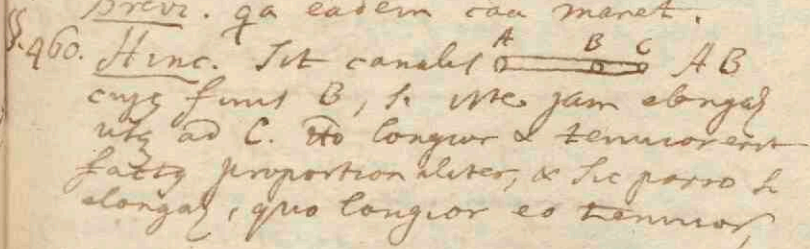 brevi. qa eadem caa manet.
§§. 460. Hinc. Sit canalis A B C AB
cujq finis B, si iste jam elongaʒ
usq ad C. longior & tenuior erit
factq proportionaliter, & sic porro si
elongaʒ, quo longior eo tenuior,